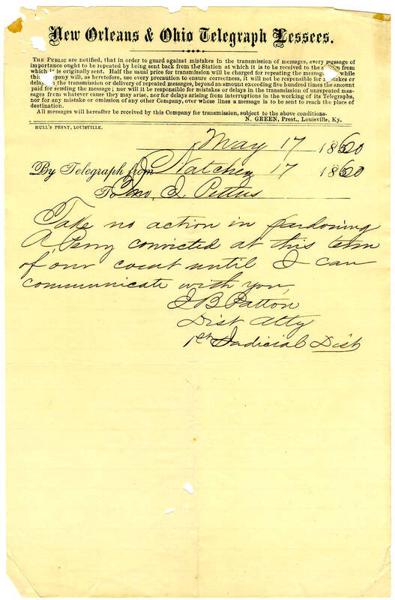 New Orleans & Ohio Telegraph Lessees.
THE PUBLIC are notified, that in order to guard against mistakes in the transmission of messages, every message of
importance ought to be repeated by being sent back from the Station at which it is to be received to the from
which it is originally sent. Half the usual price for transmission will be charged for repeating the message while
this pany will, as heretofore, use every precaution to ensure correctness, it will not be responsible for mistakes or
delays in the transmission or delivery of repeated messages, beyond an amount exceeding five hundred times the amount
paid for sending the message; nor will it be responsible for mistakes or delays in the transmission of unrepeated mes-
sages from whatever cause they may arise, nor for delays arising from interruptions in the working of its Telegraphs,
nor for any mistake or omission of any other Company, over whose lines a message is to be sent to reach the place of
destination.
All messages will hereafter be received by this Company for transmission, subject to the above conditions.
N. GREEN, Prest., Louisville, Ky.
HULL'S PRINT, LOUISVILLE.
May 17 1860
By Telegraph from Natchez 17 1860
To J. Pettus
Take no action in pardoning
A, Perry convicted at this term
of our court until I can
communicate with you,
J B Patton
Dist Atty
1st Judicial Dist